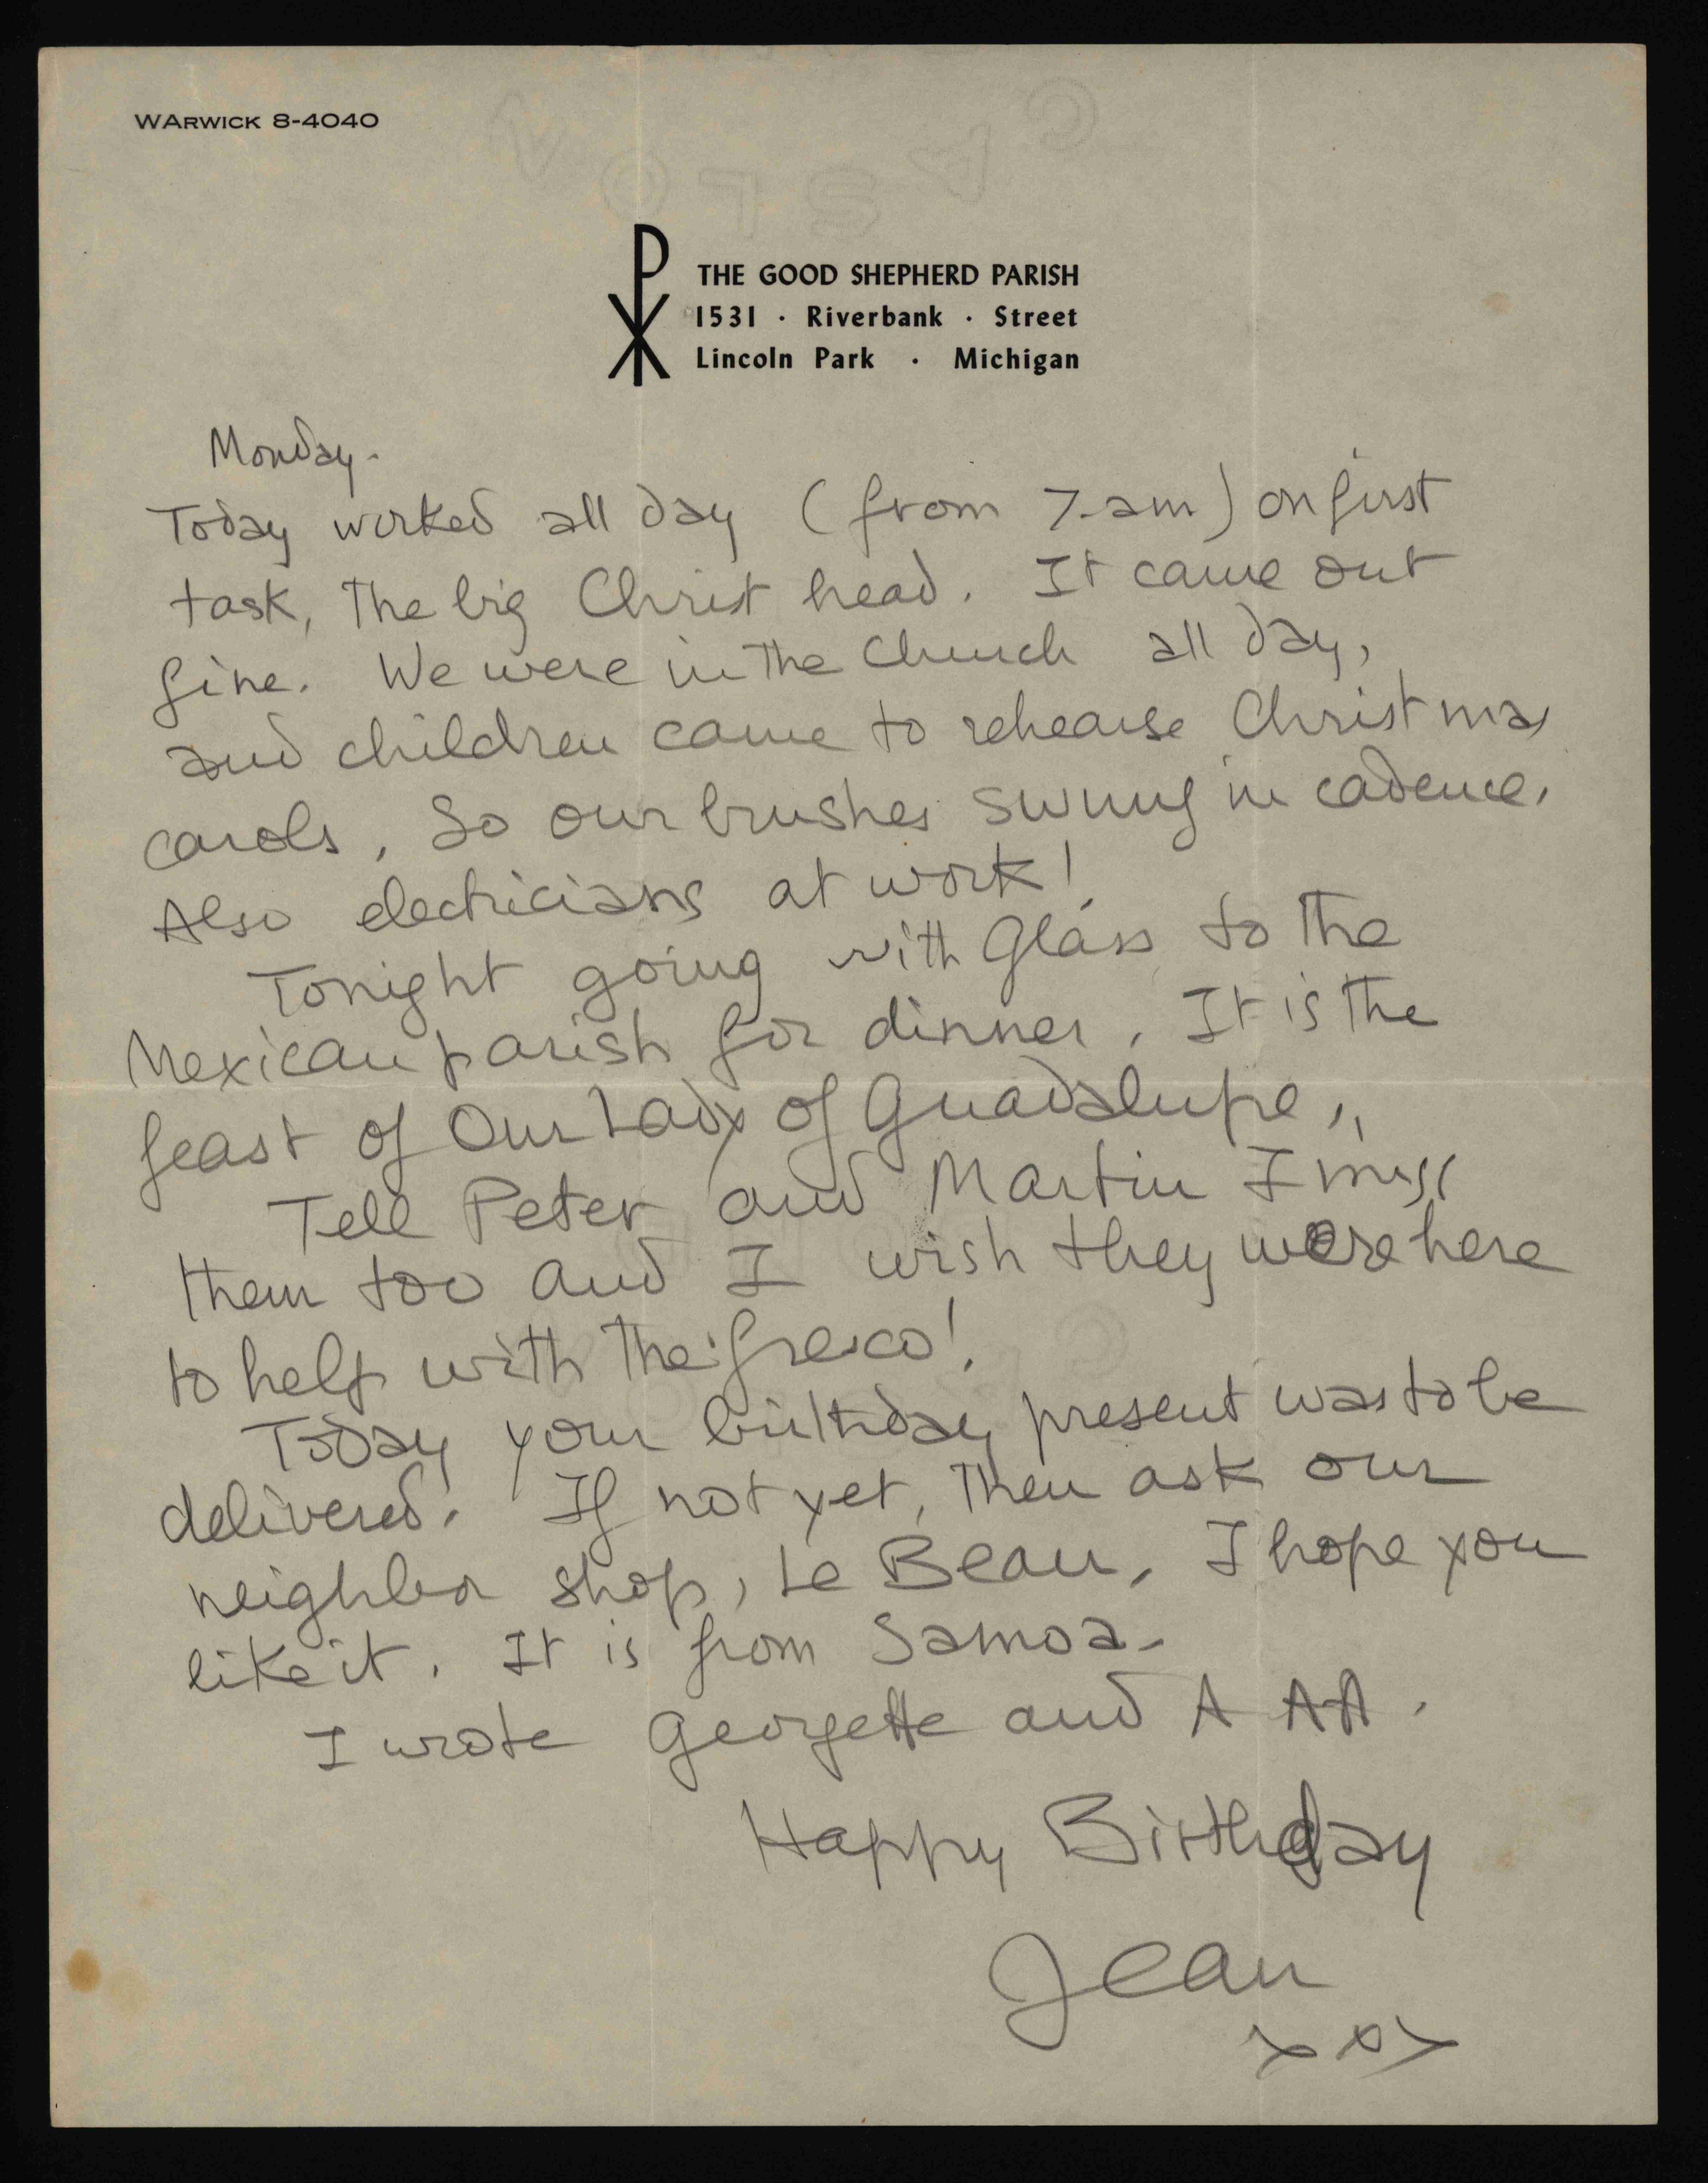 WARWICK 8-4040
THE GOOD SHEPHERD PARISH
1531 · Riverbank · Street
Lincoln Park · Michigan
Monday.
Today worked all day (from 7.am) on first
task, The big Christ head. It came out
fine. We were in the Church all day,
and children came to rehearse Christmas
carols, So our brushes swung in cadence.
Also electricians at work!
Tonight going with Glass to the
Mexican parish for dinner. It is the
feast of Our Lady of Guadalupe.
Tell Peter and Martin I miss
them too and I wish they were here
to help with the fresco!
Today your birthday present was to be
delivered. If not yet, then ask our
neighbor shop, Le Beau. I hope you
like it. It is from Samoa.
I wrote Georgette and A AA.
Happy Birthday
Jean
xxx